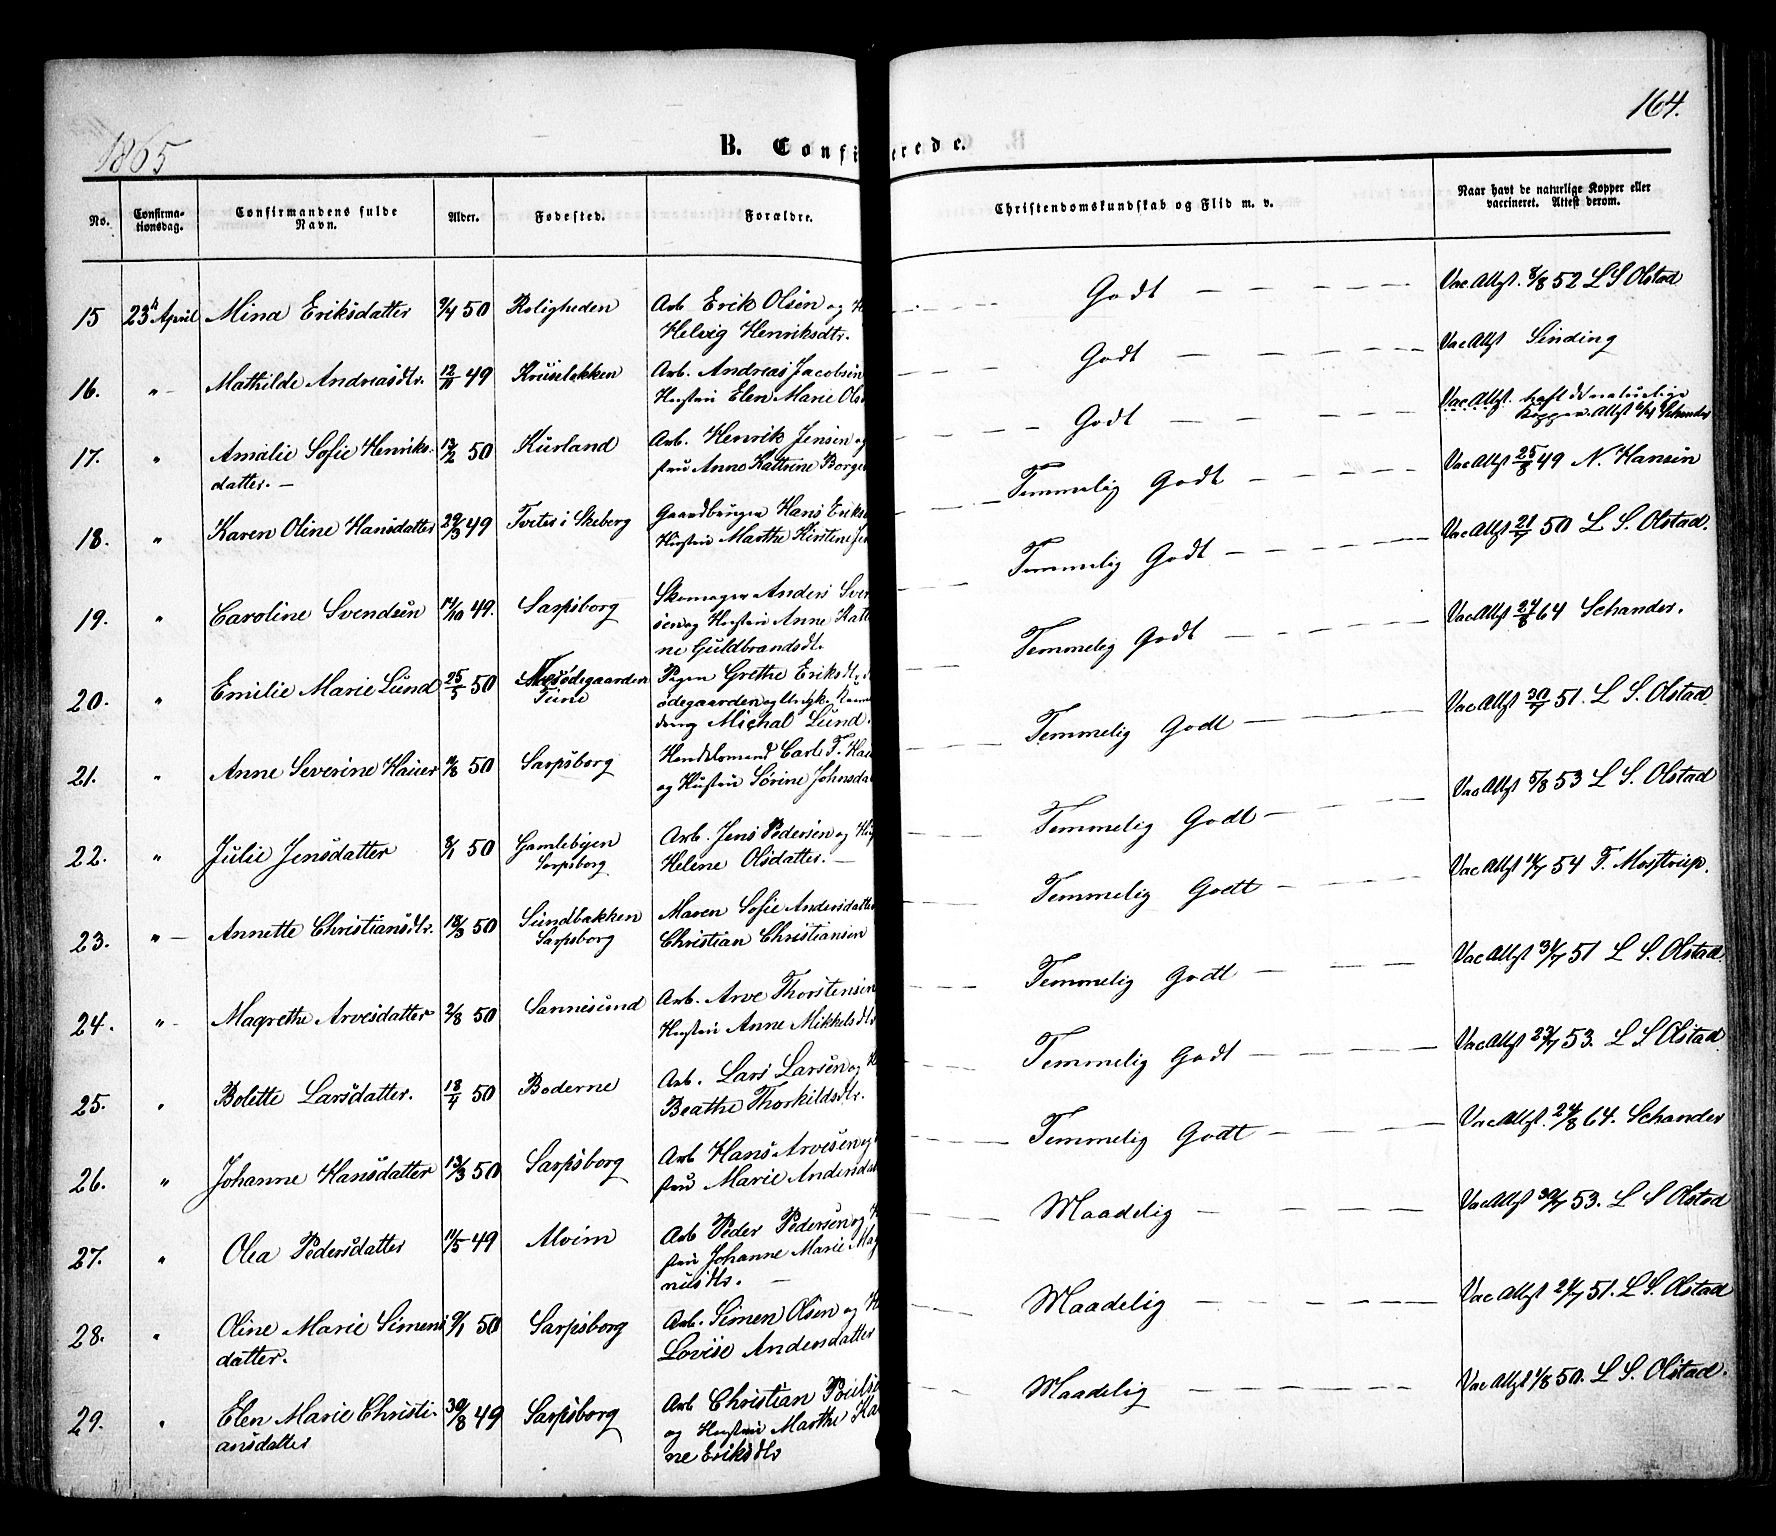 164.
1865
B. Confi erede.
No.
Confirma-
tionsdag.
Confirmandens fulde
Navn.
Alder.
Fødested.
Forældre.
Christendomskundskab og Flid m. v.
Naar havt de naturlige Kopper eller
vaccineret. Attest derom.
15 23d April Mina Eriksdatter 9/4 50 Roligheden Arb Erik Olsen og H
Helvig Henriksdtr.
Godt
Vac Attst. 8/8 52 L S Olstad
16. " Mathilde Andreasdtr. 12/11 49 Kruseløkken Arb. Andreas Jacobsen
Hustru Elen Marie Ols
Godt
Vac Attst Sinding
17. " Amalie Sofie Henriks- 13/2 50 Kurland Arb. Henrik Jensen og
datter. stru Anne Kattrine Borge
Godt
Vac Attst. haft de naturlige
Kopper. Attst Schander
18. " Karen Oline Hansdatter 29/3 49 Tveter i Skeberg Gaardbruger Hans Eriks
Hustru Marthe Kirstine Je
Temmelig Godt
Vac Attst 25/8 49 N. Hansen
19. " Caroline Svendsen 14/10 49. Sarpsborg Skomager Anders Sven
sen og Hustru Anne Kattri
ne Guldbrandsdt.
Temmelig Godt
Vac Attst 21/7 50 L. S. Olstad.
20. " Emilie Marie Lund 25/5 50 ødegaarden
Tune
Pigen Grethe Eriksdt.
ødegaarden og Ungk.
Michal Lund.
Temmelig Godt
Vac Attst 24/8 64 Schander.
21. " Anne Severine Hauer 9/8 50 Sarpsborg Handelsmand Carl F. Hau
og Hustru Sørine Johnsda
Temmelig Godt
Vac Attst 30/7 51. L. S. Olstad
22. " Julie Jensdatter 8/1 50 Gamlebyen
Sarpsborg
Arb. Jens Pedersen og Hu
Helene Olsdatter.
Temmelig Godt
Vac Attst 5/8 53 L S. Olstad
23. " Annette Christiansdtr. 18/3 50 Sundbakken
Sarpsborg
Maren Sofie Andersdatter
Christian Christiansen
Temmelig Godt
Vac Attst 54 F. Mosttrup.
24. " Magrethe Arvesdatter 2/8 50 Sannesund Arb. Arve Thorstensen
Hustru Anne Mikkelsdtr
Temmelig Godt
Vac Attst 31/7 51 L S. Olstad.
25. " Bolette Larsdatter. 18/4 50 Boderne Arb. Lars Larsen og H
Beathe Thorkildsdtr.
Temmelig Godt
Vac Attst 23/7 53. L S Olstad
26. " Johanne Hansdatter 13/3 50 Sarpsborg Arb Hans Arvesen og
stru Marie Andersdat
Temmelig Godt
Vac Attst. 24/8 64. Schander
27. " Olea Pedersdatter 11/5 49 Alvim Arb Peder Pedersen og H
stru Johanne Marie Mag
nusdtr.
Maadelig
Vac Attst 30/7 53. L S Olstad
28. " Oline Marie Simens 9/1 50 Sarpsborg Arb. Simen Olsen og H
datter. Lovise Andersdatter
Maadelig
Vac Attst 21/7 51. L S. Olstad
29. " Elen Marie Christi- 30/8 49 Sarpsborg Arb Christian Poulse
ansdatter og Hustru Marthe Ka
ne Eriksdtr
Maadelig
Vac Attst 1/8 50. L S. Olstad.